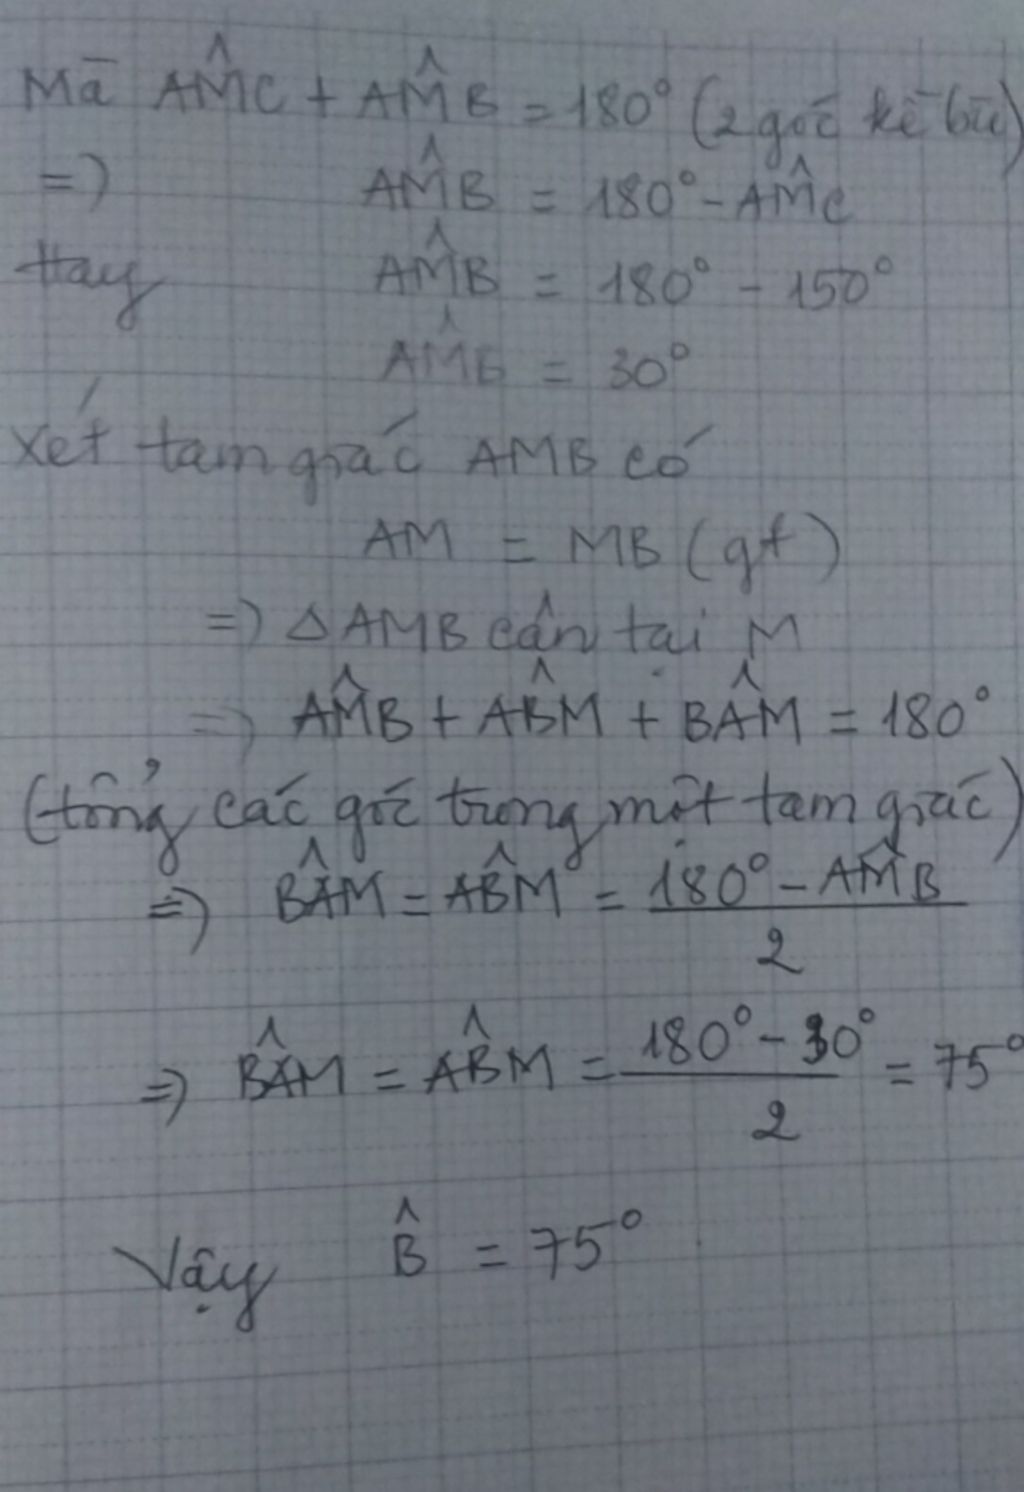 Mà AM̂C + AM̂B = 180° (2 góc kề bù)
=> AM̂B = 180° - AM̂C
Hay AM̂B = 180° - 150°
AM̂B = 30°
Xét tam giác AMB có
AM = MB (gt)
=> Δ AMB cân tại M
=> AM̂B + AB̂M + BÂM = 180°
(tổng các góc trong một tam giác)
=> BÂM = AB̂M = (180° - AM̂B)/2
=> BÂM = AB̂M = (180° - 30°)/2 = 75°
Vậy B̂ = 75°